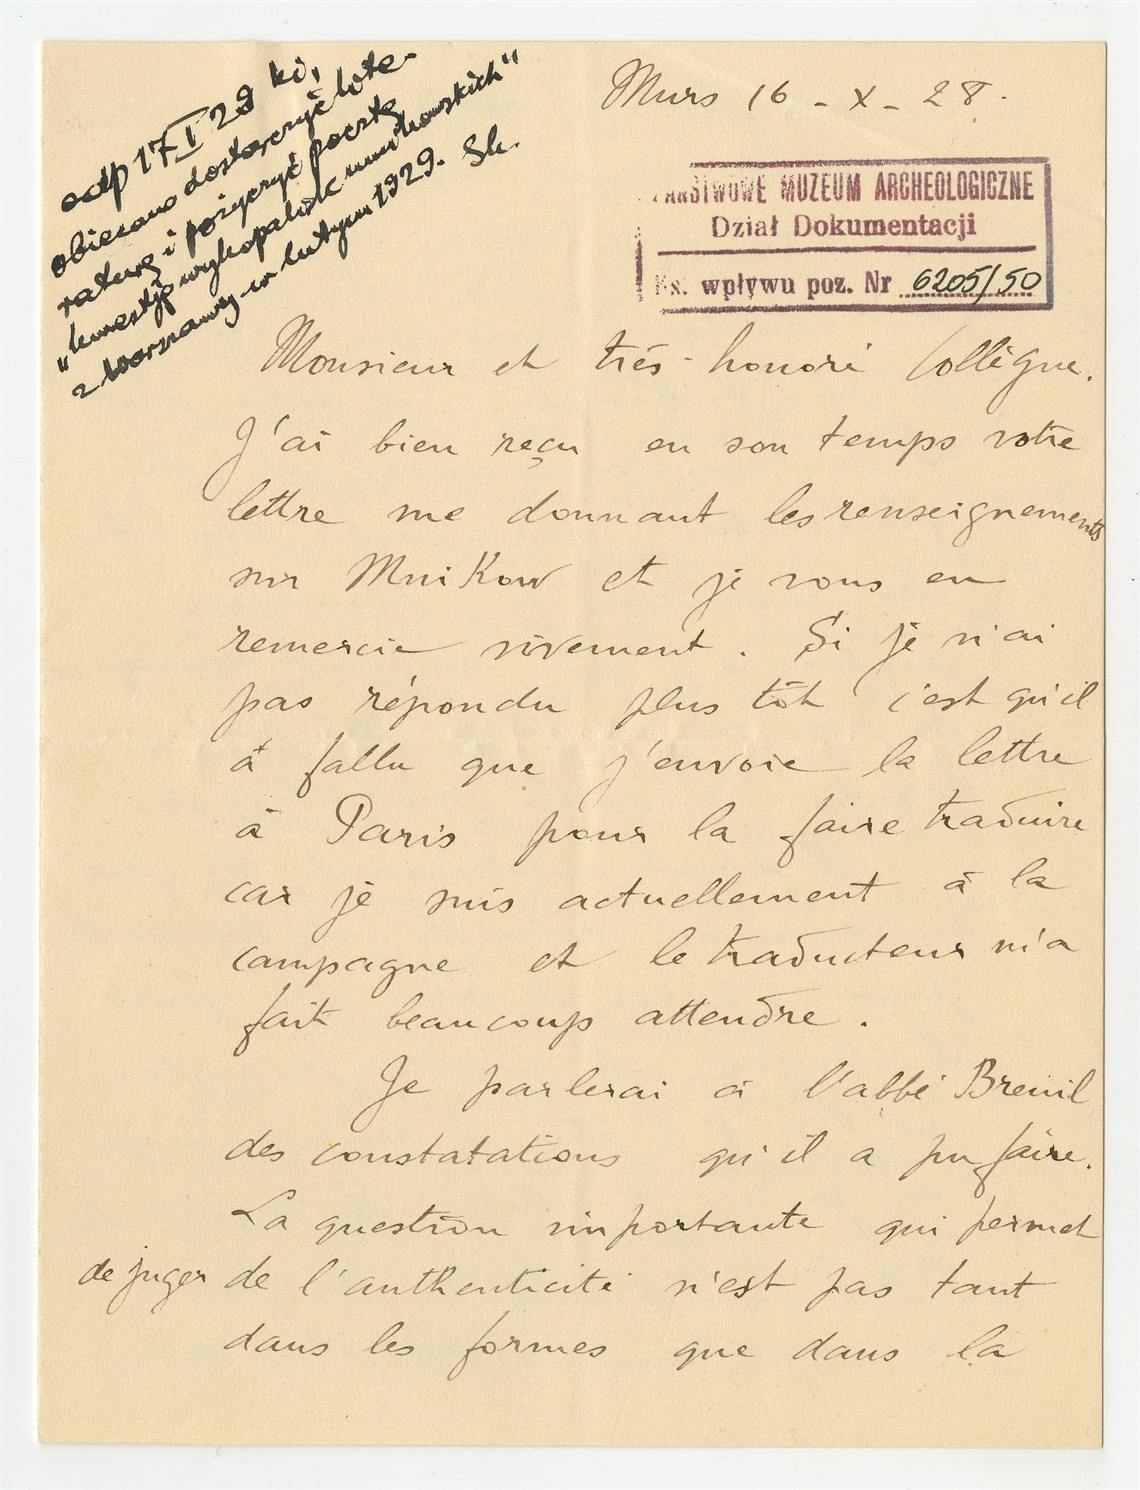 odp 17 I 29 ki,
obiecano dostarczyć lite-
raturę i pożyczyć pocztą
„kwestję wykopalisk mnikowskich"
z Warszawy w lutym 1929. Sk.
Murs 16 - X - 28.
PAŃSTWOWE MUZEUM ARCHEOLOGICZNE
Dział Dokumentacji
Ks. wpływu poz. Nr 6205/50
Monsieur et très-honoré Collègue.
J'ai bien reçu en son temps votre
lettre me donnant les renseignements
sur MniKow et je vous en
remercie vivement. Si je n'ai
pas répondu plus tôt c'est qu'il
à fallu que j'envoie la lettre
à Paris pour la faire traduire
car je suis actuellement à la
campagne et le traducteur m'a
fait beaucoup attendre.
Je parlerai à l'abbé Breuil
des constatations qu'il a pu faire.
La question importante qui permet
de juger de l'authenticité n'est pas tant
dans les formes que dans la